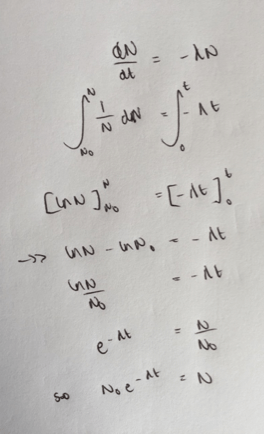 dN/dt = -λN
∫_{N₀}^{N} 1/N dN = ∫_{0}^{t} -λt
[lnN]_{N₀}^{N} = [-λt]_{0}^{t}
->> lnN - lnN₀ = -λt
lnN/N₀ = -λt
e^{-λt} = N/N₀
so N₀e^{-λt} = N